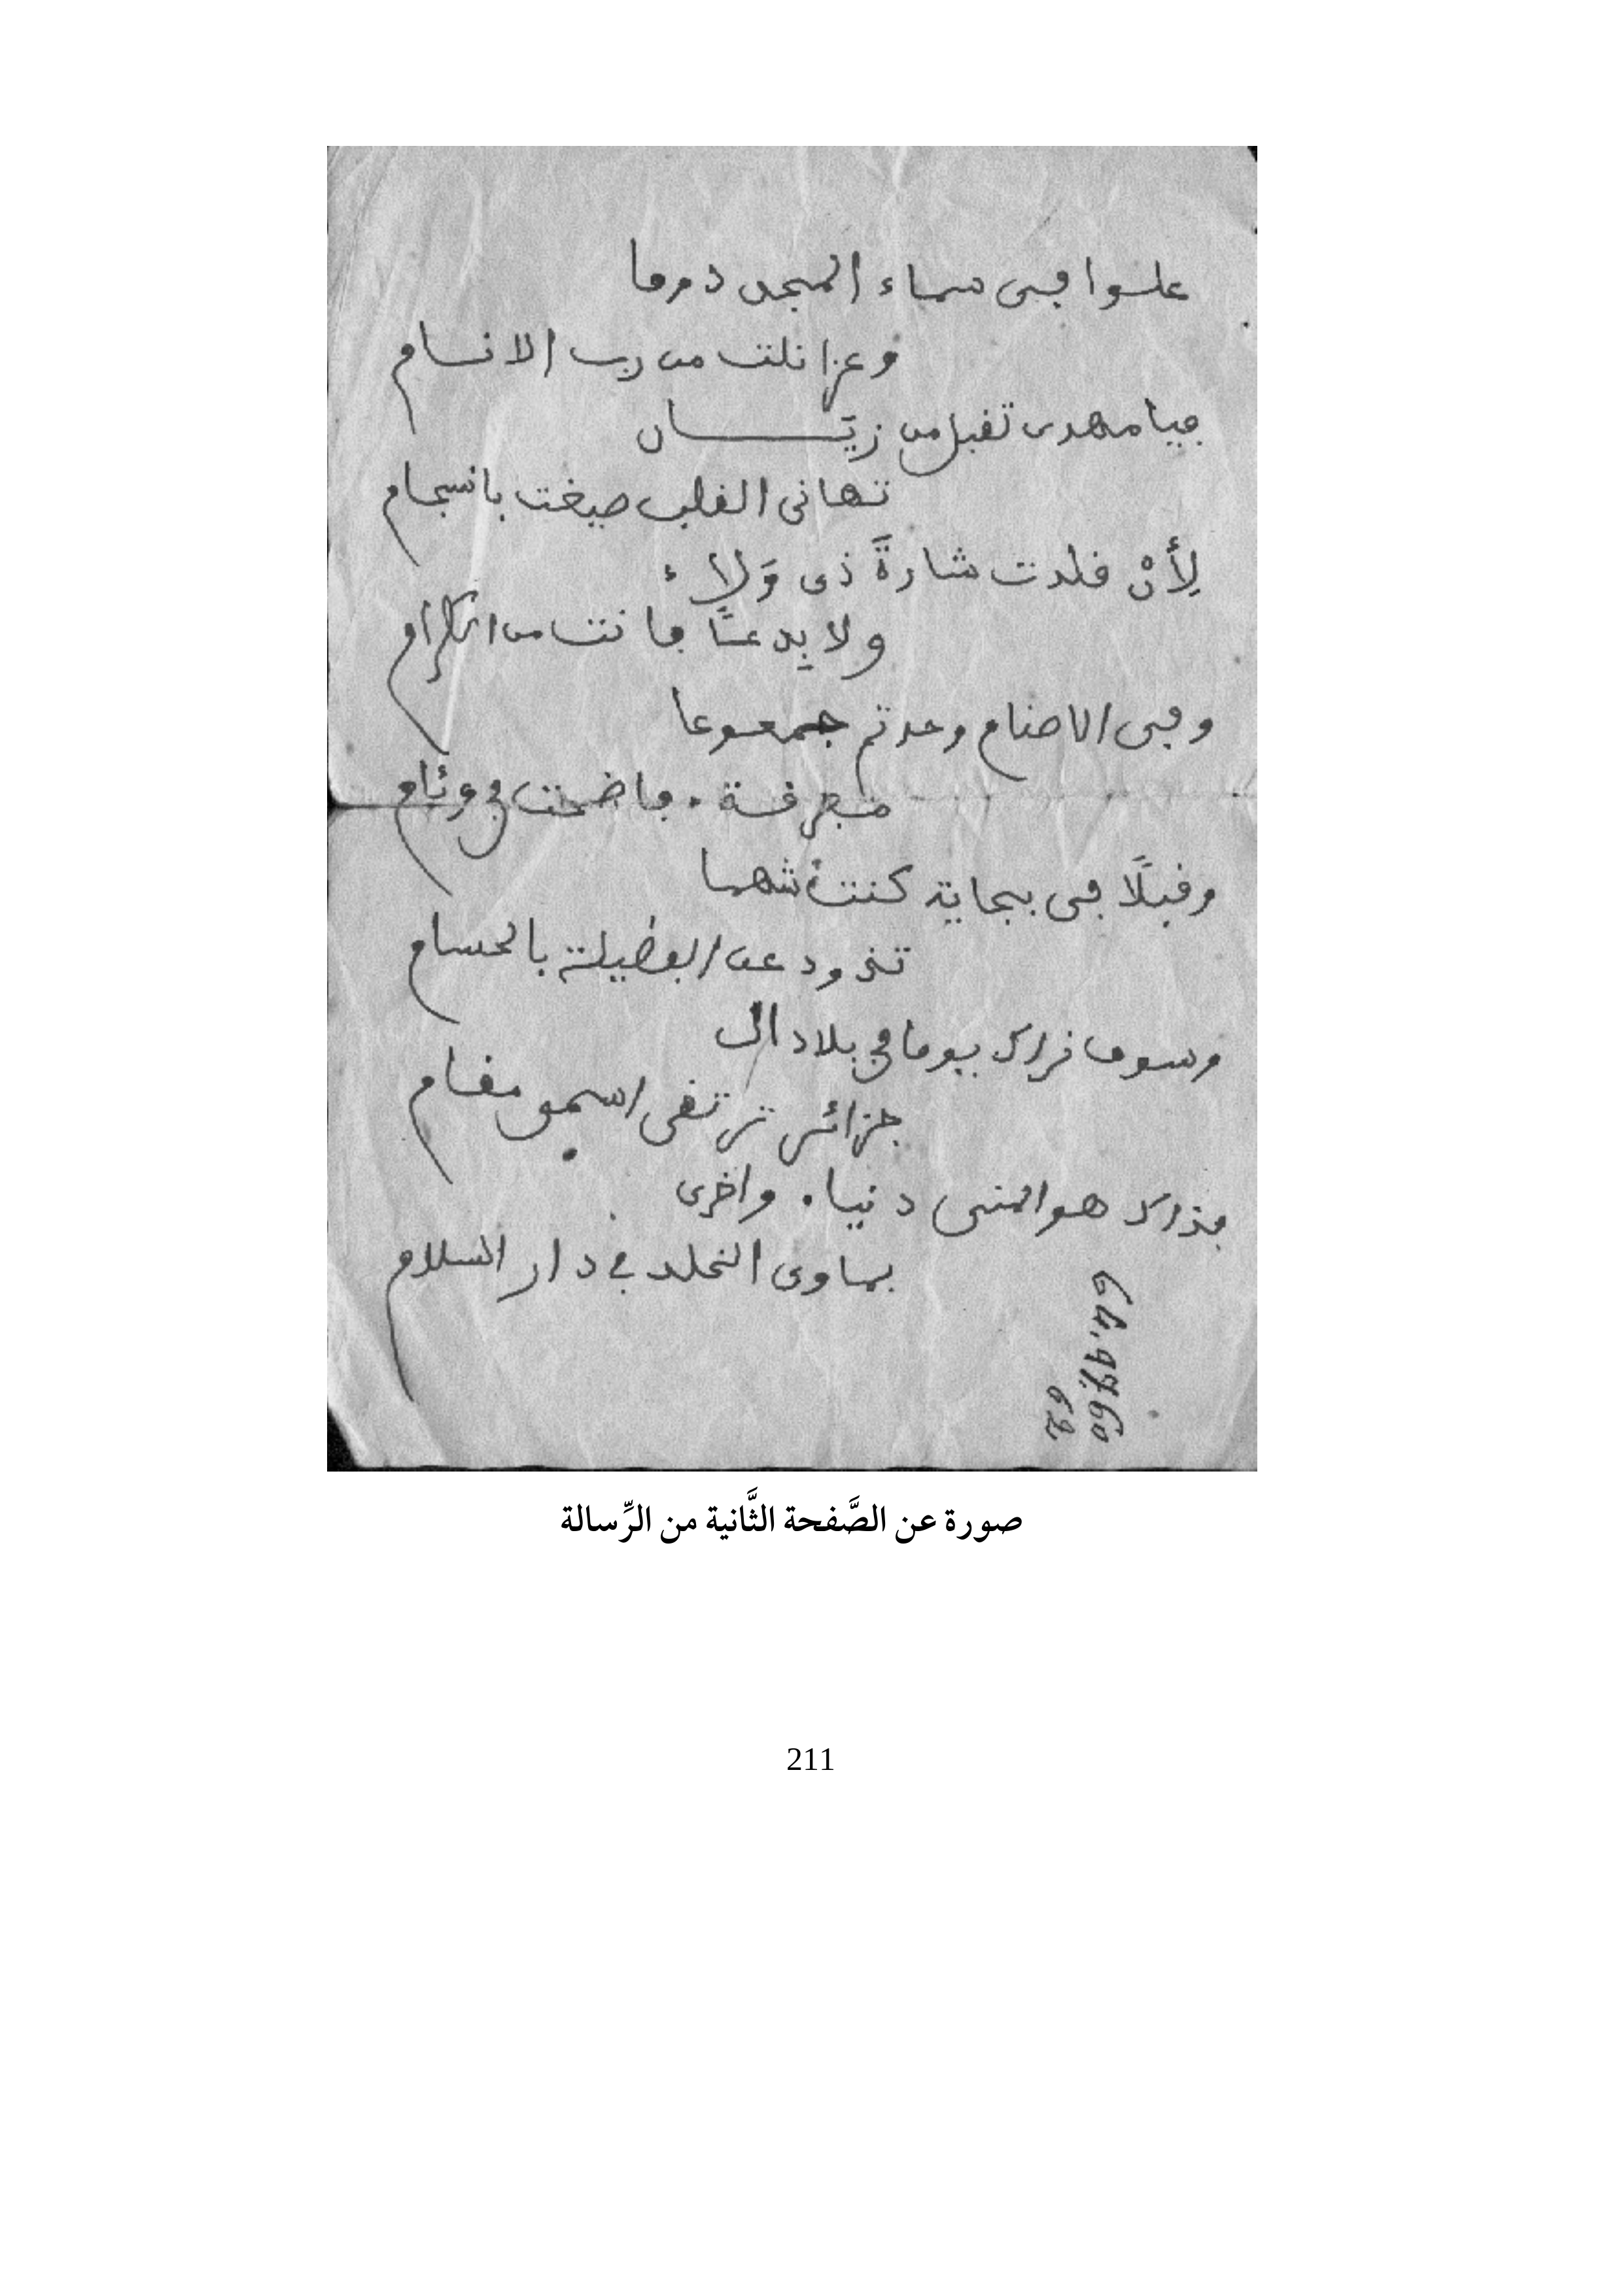 علوا في سماء المجد دوما
وعزا نلت من رب الانام
فيا مهدي تقبل من زيّان
تهاني القلب صيغت بانسجام
لِأنْ قلدت شارةَ ذي وَلاء
ولا بِدعًا فانت من الكرام
وفي الاصنام وحدتم جموعا
مفرقة . فاضحت في وئام
وقبلًا في بجاية كنت شهما
تذود عن الفضيلة بالحسام
وسوف نراك يوما في بلاد ال
جزائر ترتقي اسمى مقام
فذاك هو المنى دنيا . واخرى
بماوى الخلد في دار السلام
62
صورة عن الصَّفحة الثَّانية من الرِّسالة
211